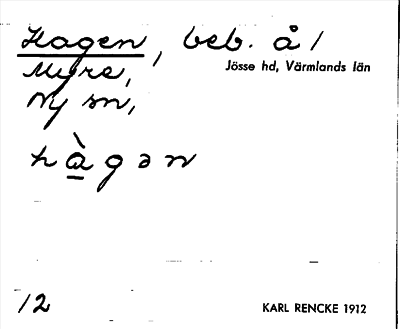 Hagen, beb. å /
Myra,
Jösse hd, Värmlands län
Ny sn,
hà̱gən
12
KARL RENCKE 1912